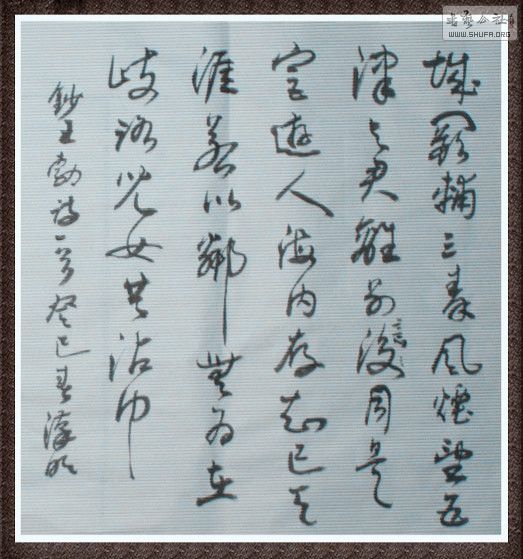 書藝公社
WWW.SHUFA.ORG
城闕輔三秦風煙望五
津与君離別後意同是
宦遊人海内存知己天
涯若比鄰無為在
歧路兒女共沾巾
鈔王勃詩一首癸巳春